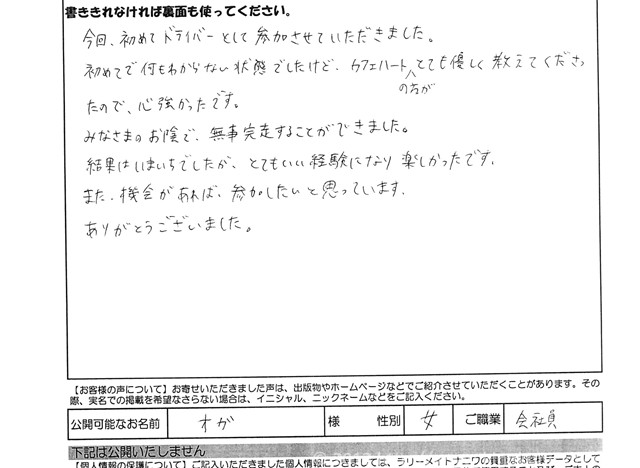 書ききれなければ裏面も使ってください。
今回、初めてドライバーとして参加させていただきました。
初めてで何もわからない状態でしたけど、カフェハートの方がとても優しく教えてくださっ
たので、心強かったです。
みなさまのお陰で、無事完走することができました。
結果はいまいちでしたが、とてもいい経験になり楽しかったです。
また、機会があれば、参加したいと思っています。
ありがとうございました。
【お客様の声について】お寄せいただきました声は、出版物やホームページなどでご紹介させていただくことがあります。その
際、実名での掲載を希望なさらない場合は、イニシャル、ニックネームなどをご記入ください。
公開可能なお名前 オガ 様 性別 女 ご職業 会社員
下記は公開いたしません
【個人情報の保護について】ご記入いただきました個人情報につきましては、ラリーメイトナニワの貴重なお客様データとして